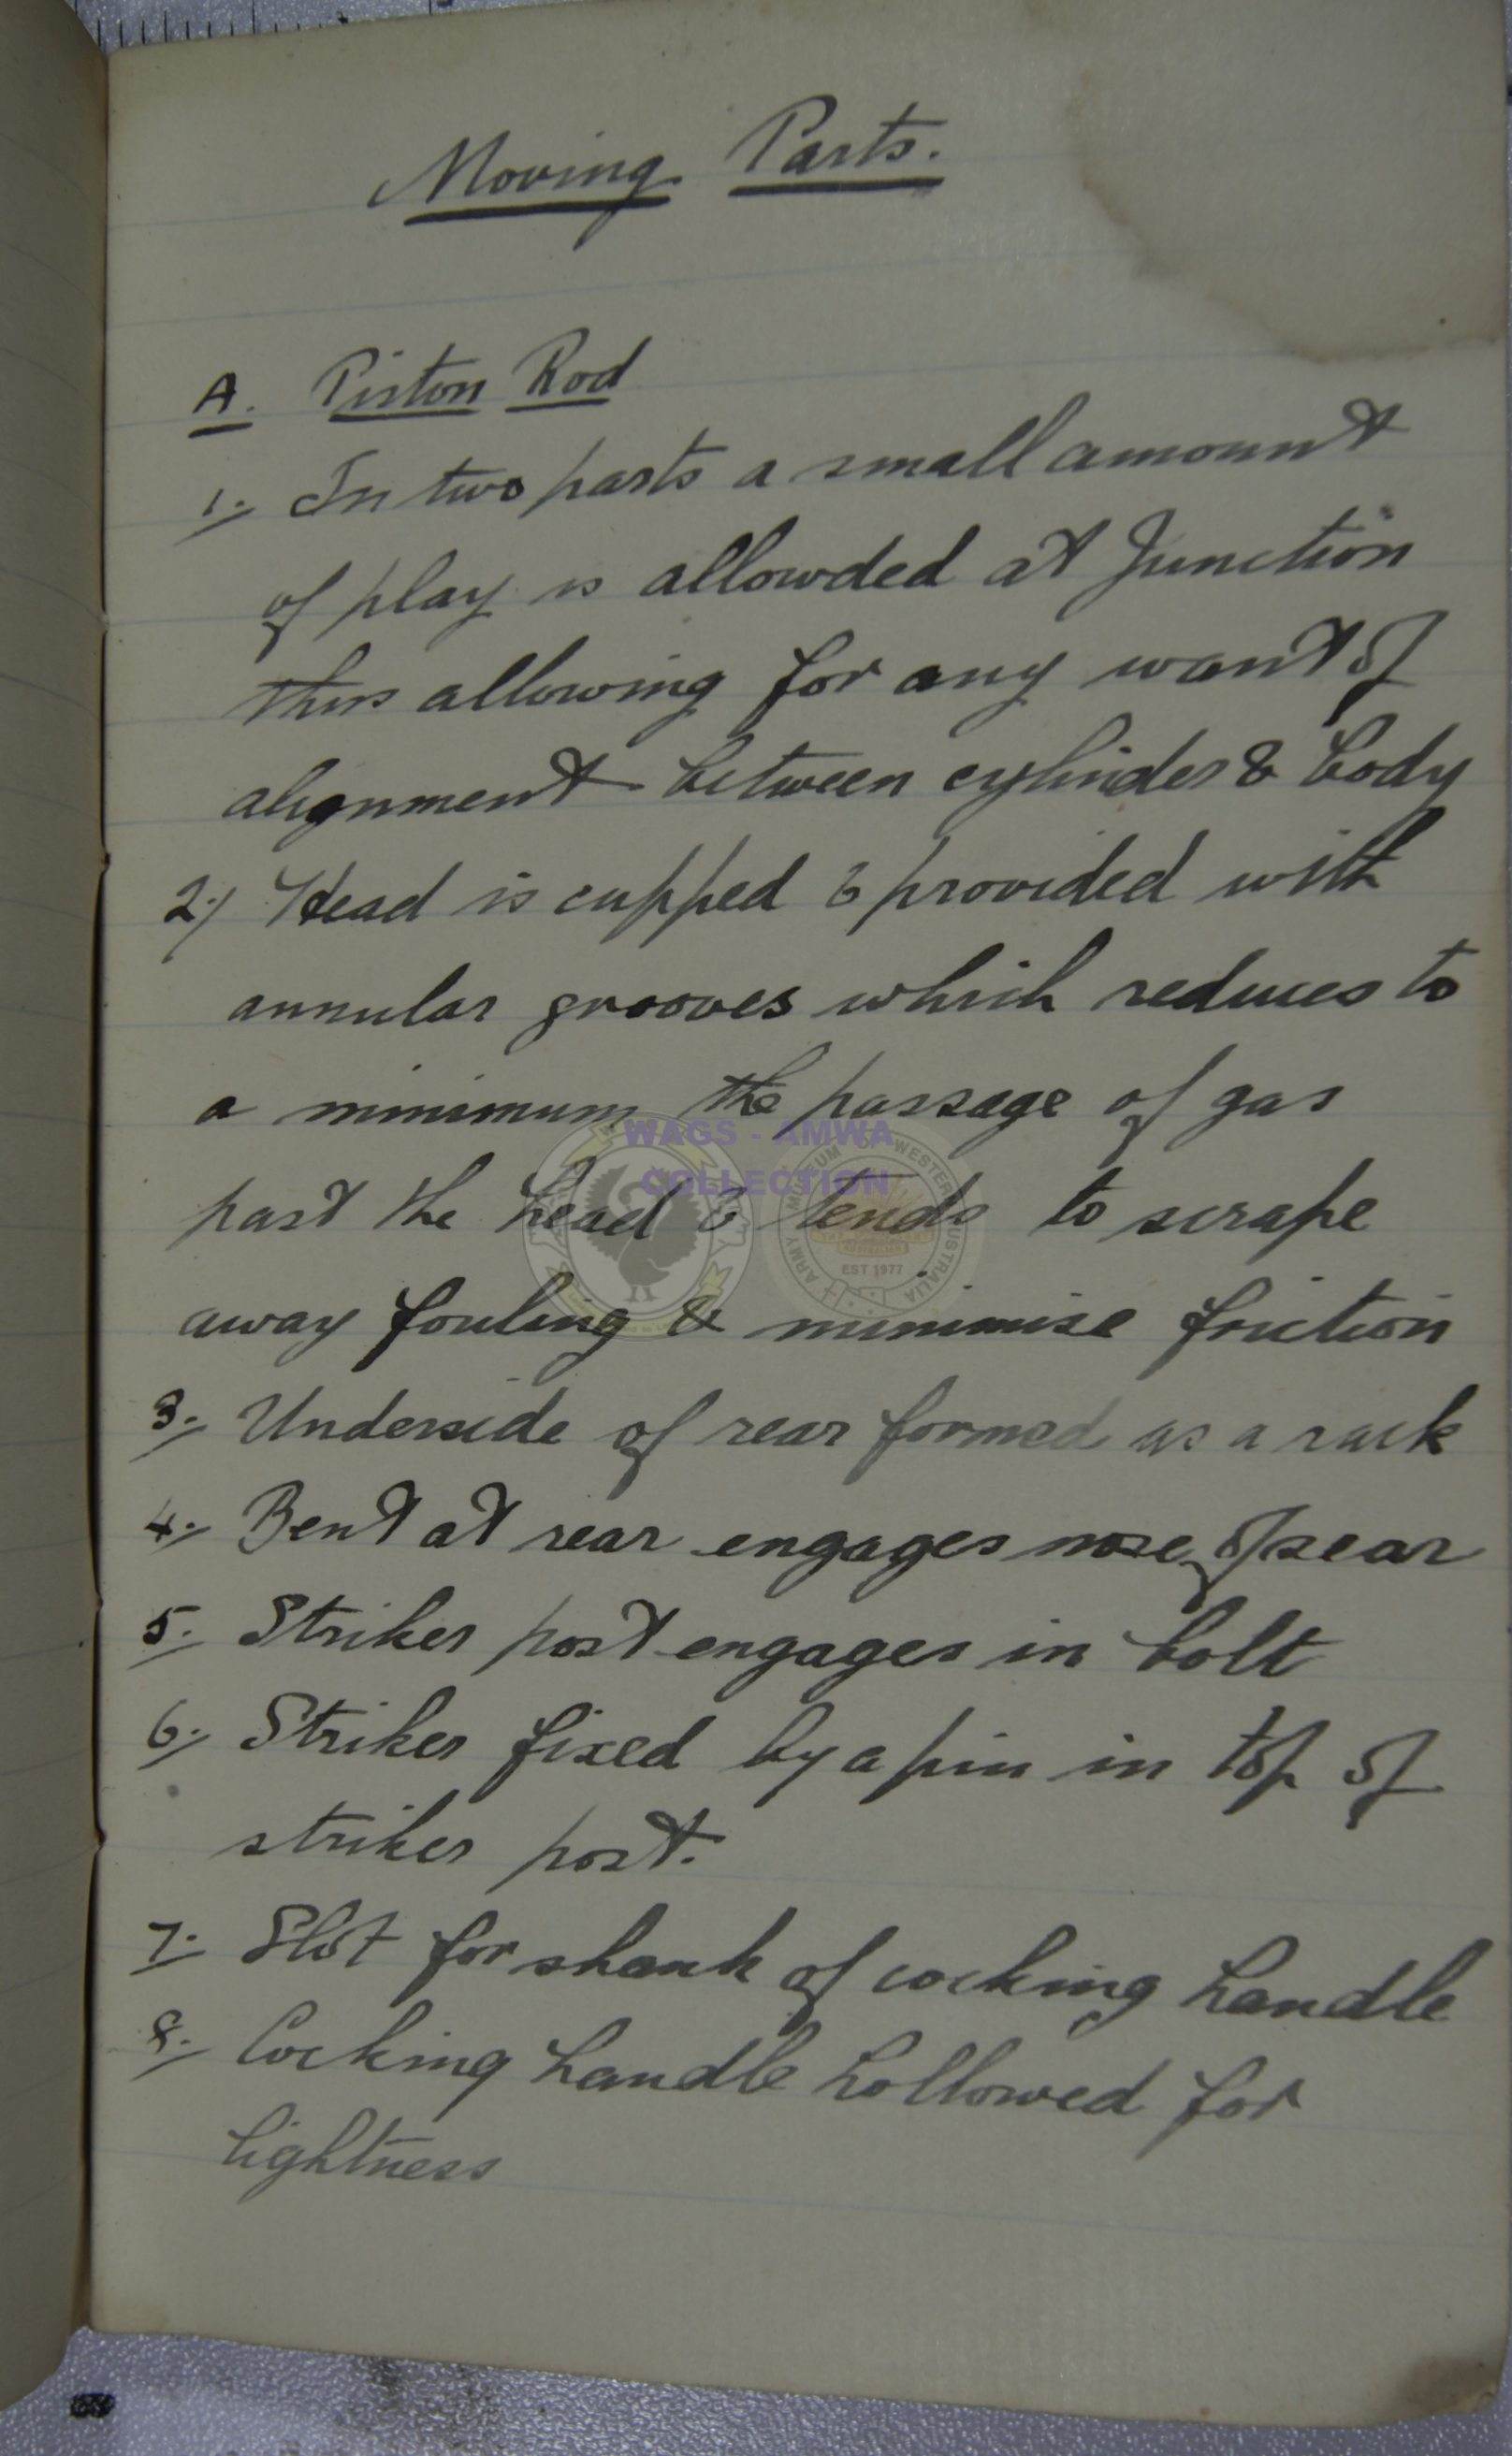 Moving Parts.
A. Piston Rod
1. In two parts a small amount
of play is allowded at Junction
thus allowing for any want of
alignment between cylinder & body
2.) Head is cupped & provided with
annular grooves which reduces to
a minimum the passage of gas
past the head & tends to scrape
away fouling & minimise friction
3. Underside of rear formed as a rack
4. Bent at rear engages nose of sear
5. Striker post engages in bolt
6. Striker fixed by a pin in top of
striker post.
7. Slot for shank of cocking handle
8. Cocking handle hollowed for
lightness
WAGS - AMWA
COLLECTION
ARMY MUSEUM OF WESTERN AUSTRALIA
EST 1977